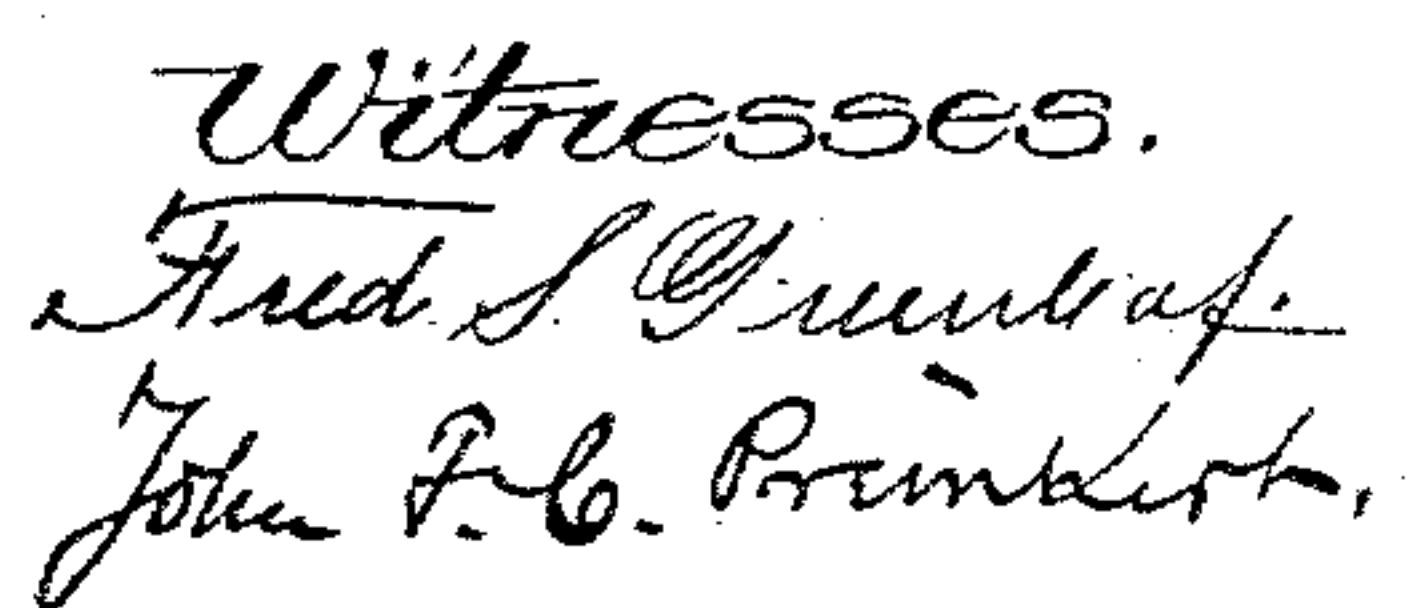 Witnesses.
Fred S Greenleaf.
John F. C. Preinkert,